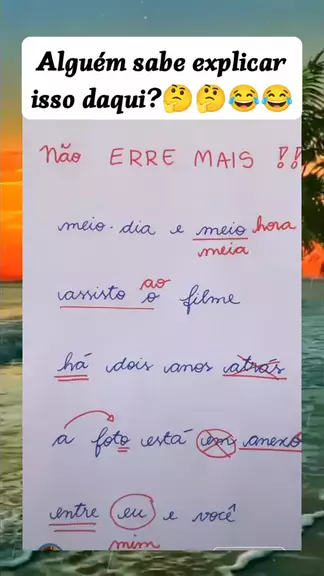 Alguém sabe explicar
isso daqui?🤔🤔😂😂
Não ERRE MAIS !!
meio-dia e meio hora
meia
ao
assisto o filme
há dois anos atrás
a foto está em anexo
entre eu e você
mim